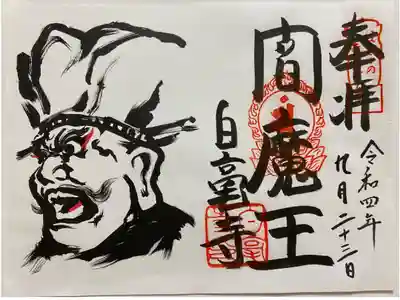 奉拝
令和四年
九月二十三日
閻魔王